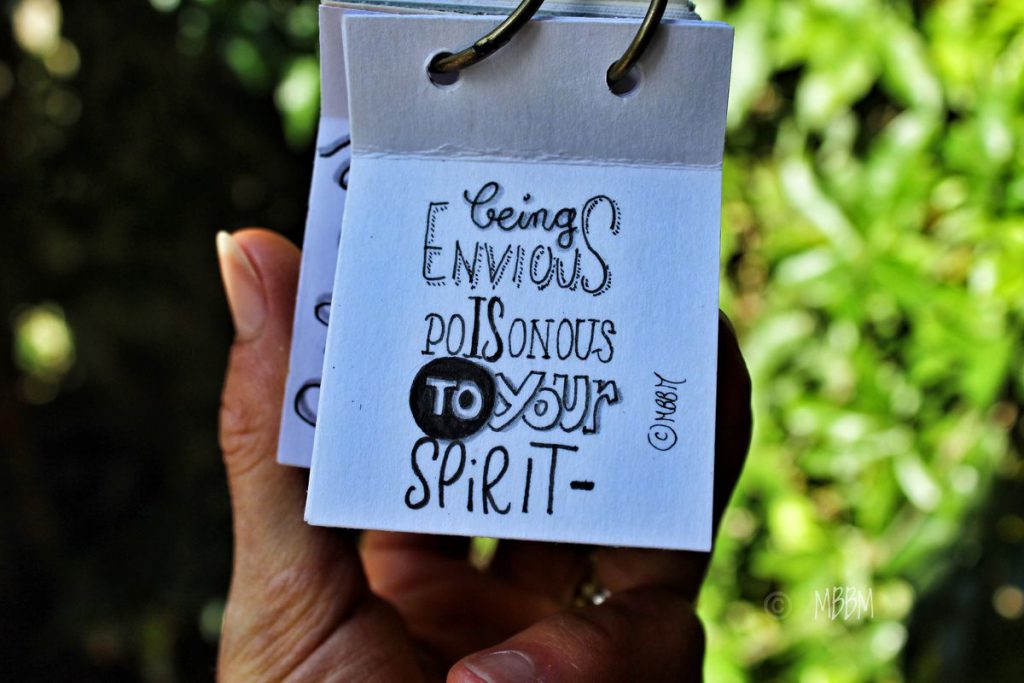 being
ENVIOUS
POISONOUS
TO YOUR
SPIRIT-
©MBBM
© MBBM